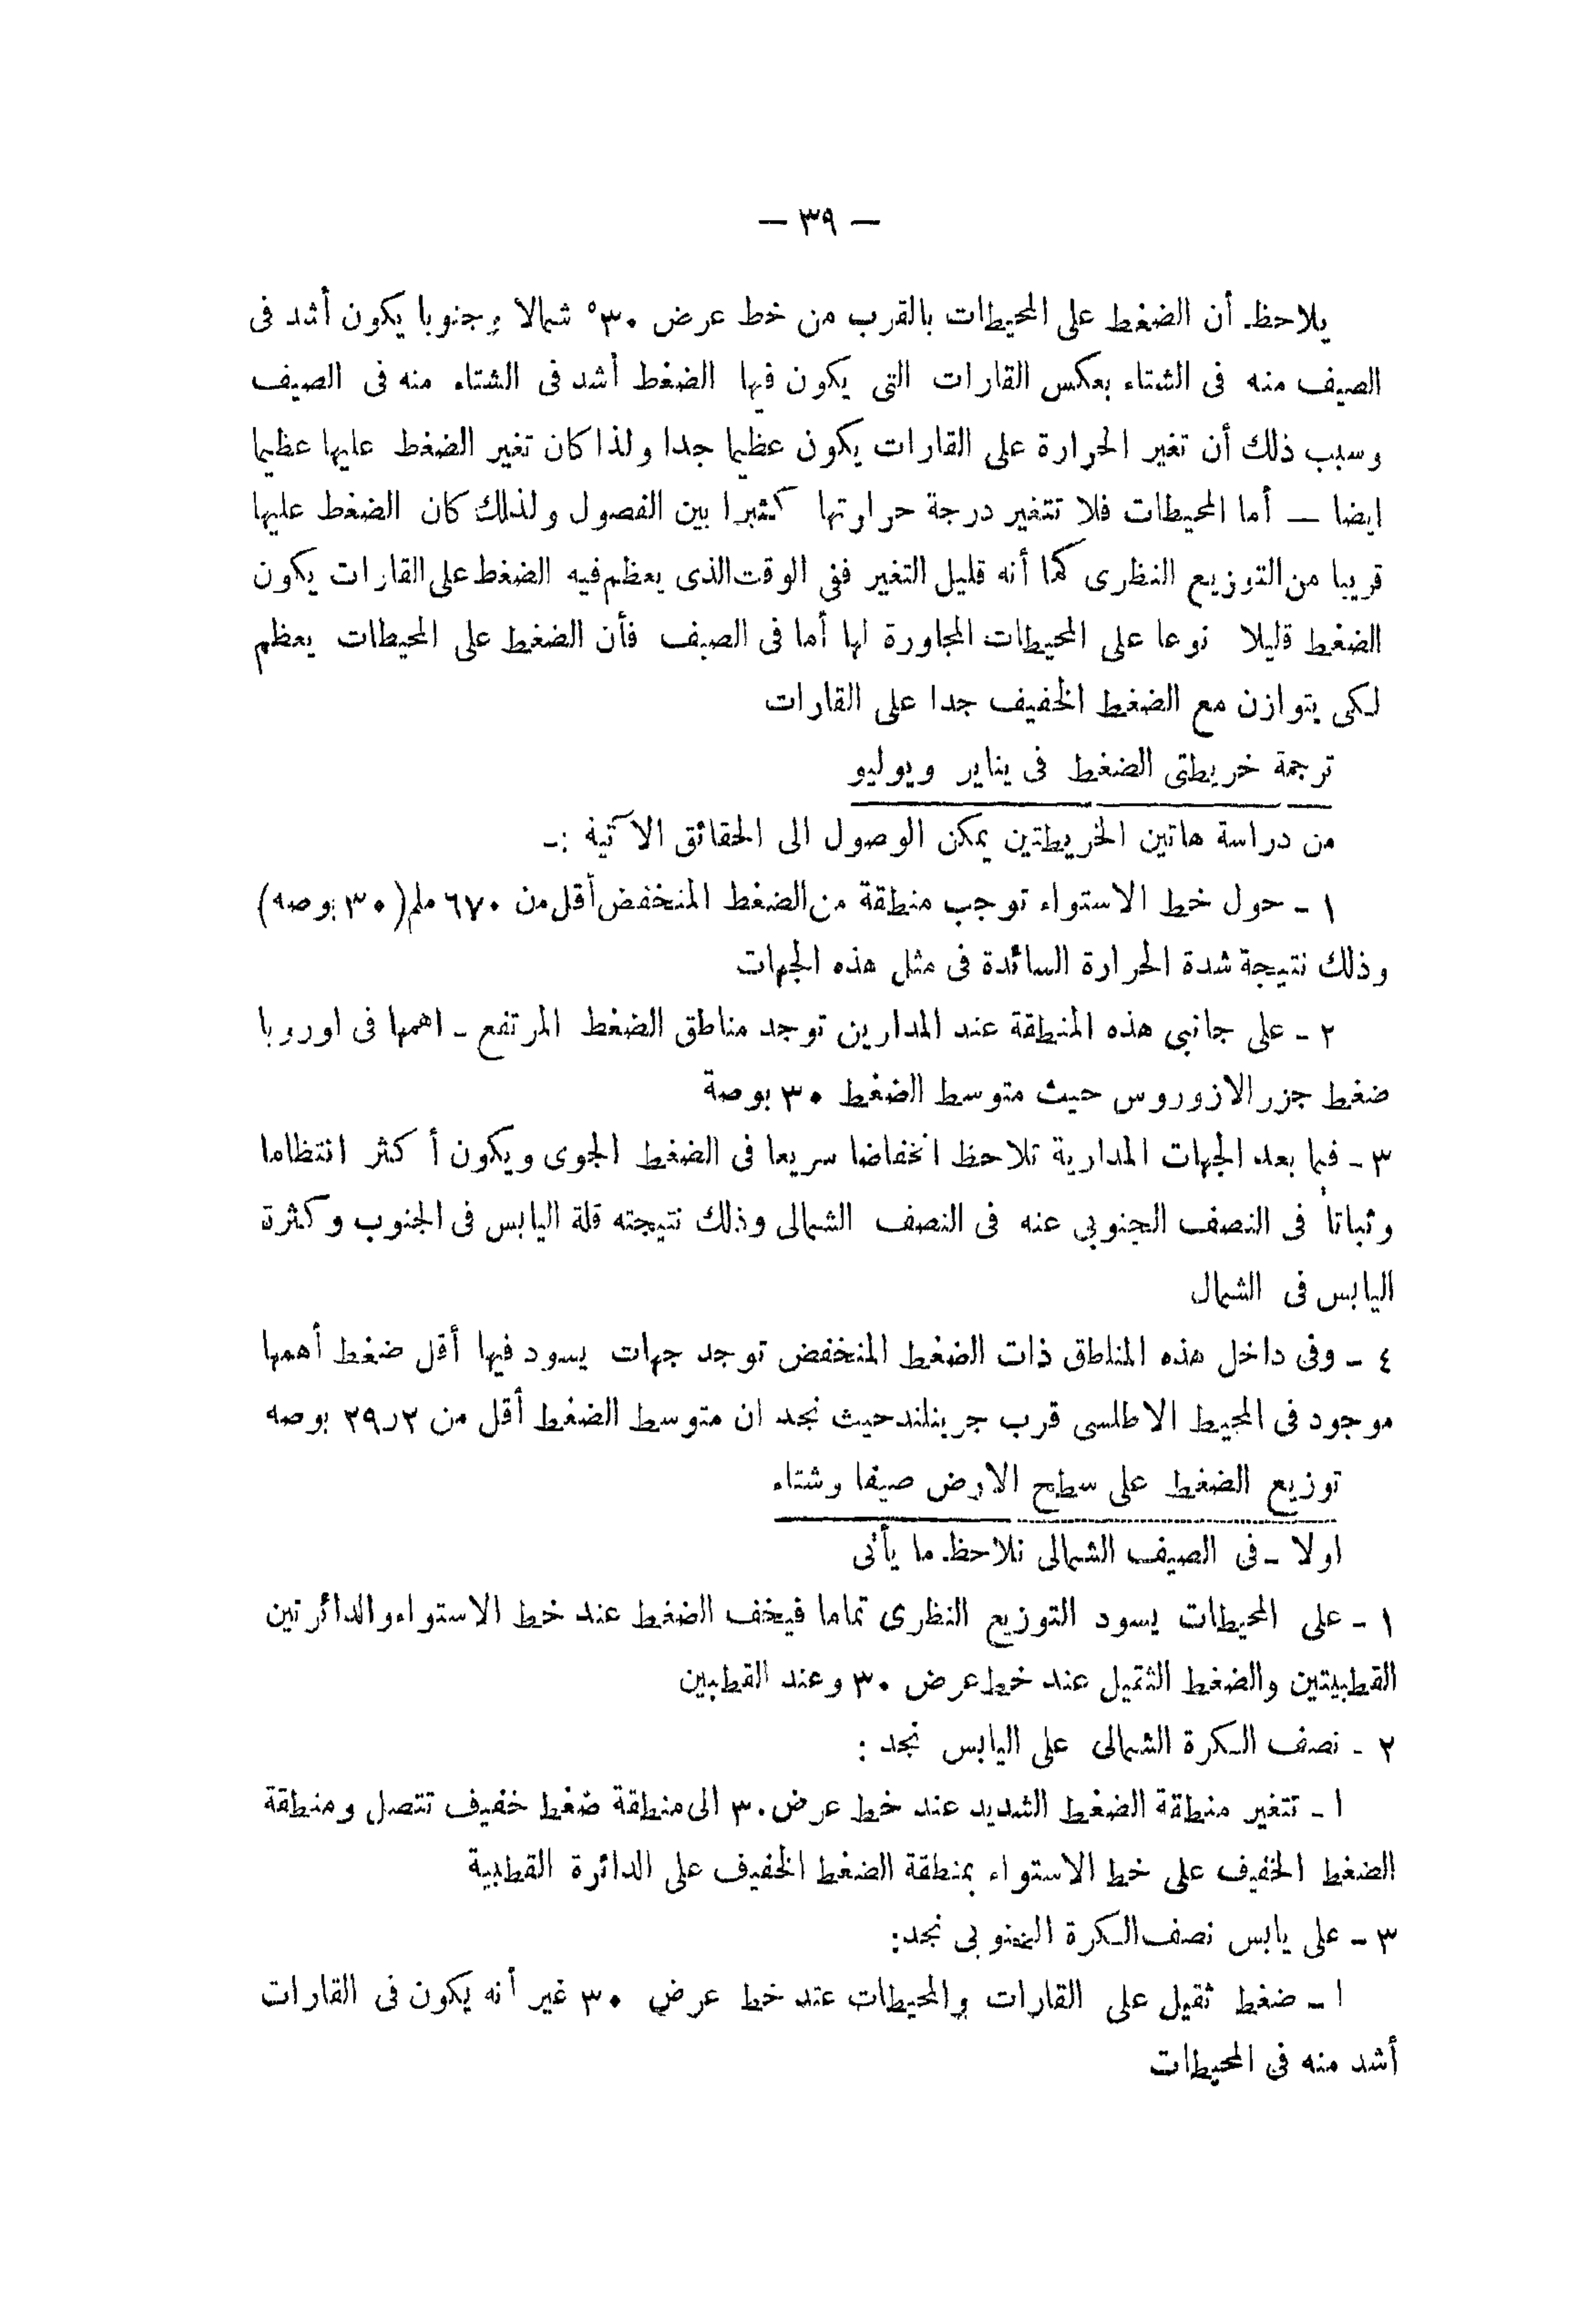 — ٣٩ —
يلاحظ. أن الضغط على المحيطات بالقرب من خط عرض ٣٠° شمالا وجنوبا يكون أشد فى
الصيف منه فى الشتاء بعكس القارات التى يكون فيها الضغط أشد فى الشتاء منه فى الصيف
وسبب ذلك أن تغير الحرارة على القارات يكون عظيما جدا ولذا كان تغير الضغط عليها عظيما
ايضا — أما المحيطات فلا تتغير درجة حرارتها كثيرا بين الفصول ولذلك كان الضغط عليها
قريبا من التوزيع النظرى كما أنه قليل التغير ففى الوقت الذى يعظم فيه الضغط على القارات يكون
الضغط قليلا نوعا على المحيطات المجاورة لها أما فى الصيف فأن الضغط على المحيطات يعظم
لكى يتوازن مع الضغط الخفيف جدا على القارات
ترجمة خريطتى الضغط فى يناير ويوليو
من دراسة هاتين الخريطتين يمكن الوصول الى الحقائق الآتية :ـ
١ ـ حول خط الاستواء توجب منطقة من الضغط المنخفض أقل من ٦٧٠ ملم (٣٠ بوصه)
وذلك نتيجة شدة الحرارة السائدة فى مثل هذه الجهات
٢ ـ على جانبى هذه المنطقة عند المدارين توجد مناطق الضغط المرتفع ـ اهمها فى اوروبا
ضغط جزر الازوروس حيث متوسط الضغط ٣٠ بوصة
٣ ـ فيما بعد الجهات المدارية تلاحظ انخفاضا سريعا فى الضغط الجوى ويكون أكثر انتظاما
وثباتا فى النصف الجنوبى عنه فى النصف الشمالى وذلك نتيجته قلة اليابس فى الجنوب وكثرة
اليابس فى الشمال
٤ ـ وفى داخل هذه المناطق ذات الضغط المنخفض توجد جهات يسود فيها أقل ضغط أهمها
موجود فى المحيط الاطلسى قرب جرينلند حيث نجد ان متوسط الضغط أقل من ٢٩٫٢ بوصه
توزيع الضغط على سطح الارض صيفا وشتاء
اولا ـ فى الصيف الشمالى نلاحظ. ما يأتى
١ ـ على المحيطات يسود التوزيع النظرى تماما فيخف الضغط عند خط الاستواء والدائرتين
القطبيتين والضغط الثقيل عند خط عرض ٣٠ وعند القطبين
٢ ـ نصف الكرة الشمالى على اليابس نجد :
ا ـ تتغير منطقة الضغط الشديد عند خط عرض ٣٠ الى منطقة ضغط خفيف تتصل ومنطقة
الضغط الخفيف على خط الاستواء بمنطقة الضغط الخفيف على الدائرة القطبية
٣ ـ على يابس نصف الكرة الجنوبى نجد:
ا ـ ضغط ثقيل على القارات والمحيطات عند خط عرض ٣٠ غير أنه يكون فى القارات
أشد منه فى المحيطات